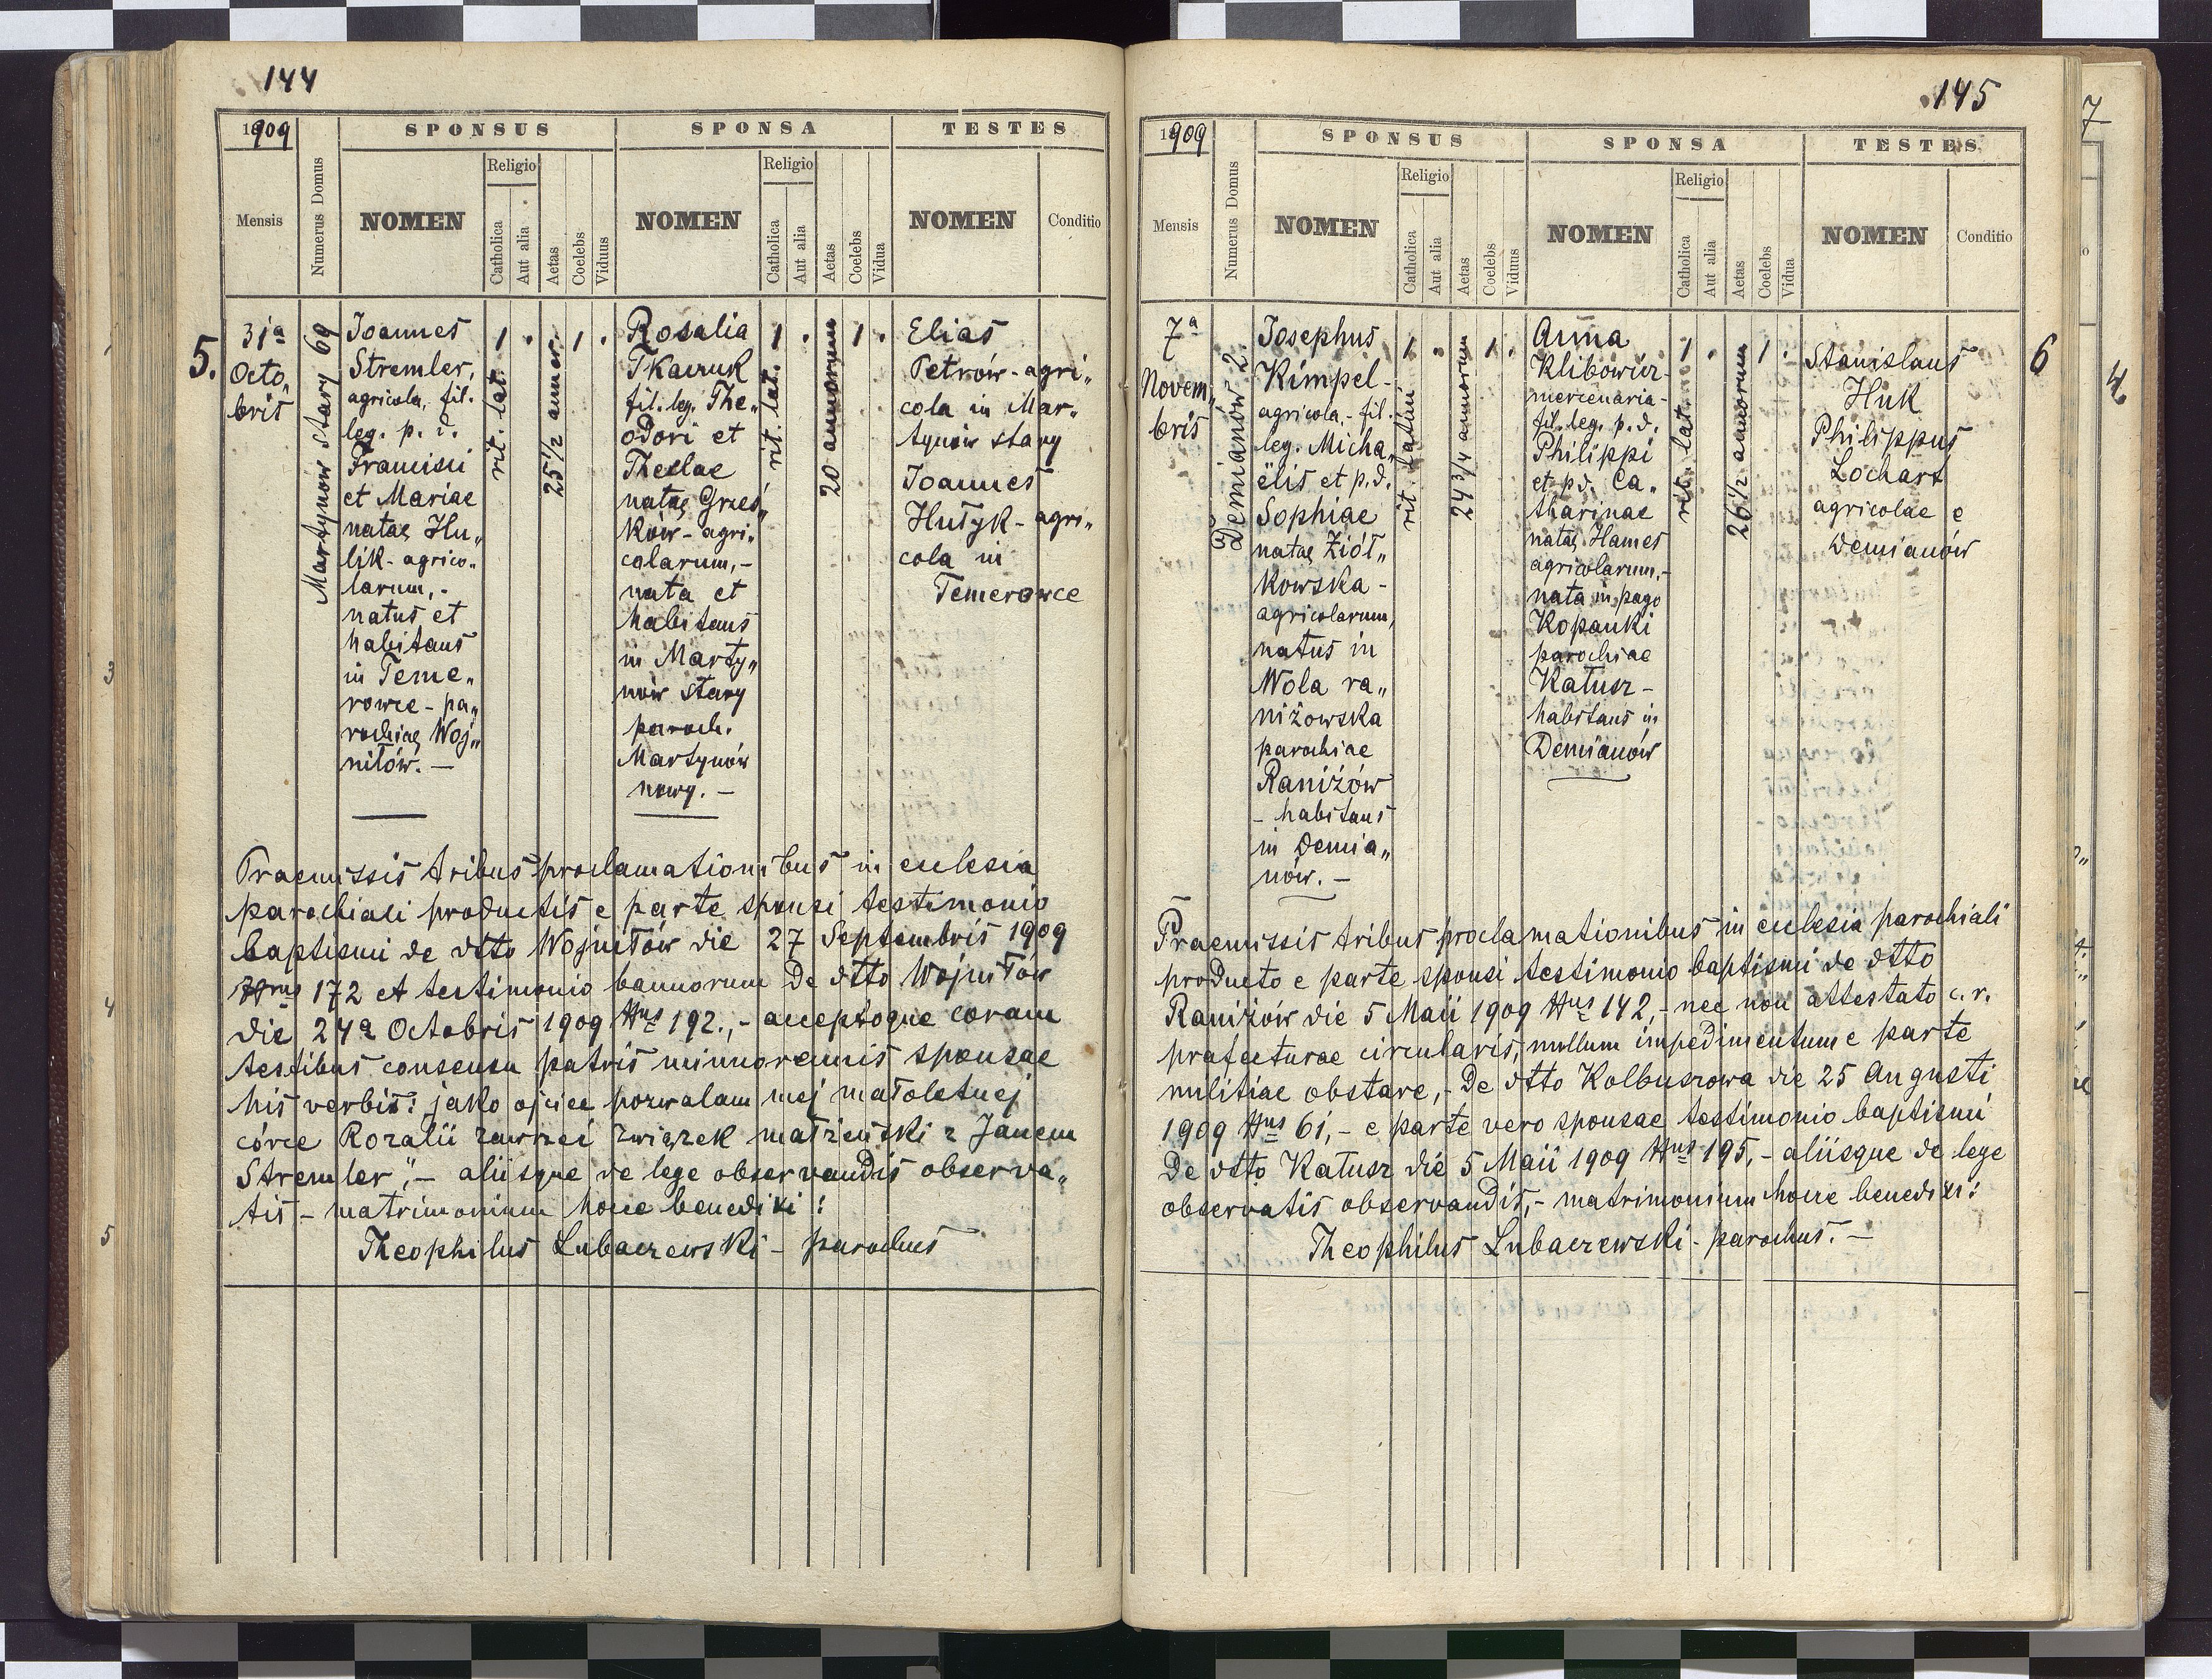 144
1909
SPONSUS
SPONSA
TESTES
Mensis
Numerus Domus
NOMEN
Religio
Catholica
Aut alia
Aetas
Coelebs
Viduus
NOMEN
Religio
Catholica
Aut alia
Aetas
Coelebs
Vidua
NOMEN
Conditio
5.
31a
Octo„
bris
Martynów stary 69
Joannes
Stremler,
agricola, fil.
leg. p. d.
Francisci
et Mariae
natae Hu„
lik - agrico„
larum, -
natus et
habitans
in Teme„
rowce - pa„
rochiae Woj„
niłów. —
1
rit. lat.
25 1/2 annor.
1
Rosalia
Tkaczuk
fil. leg. The„
odori et
Theclae
natae Grześ„
kow - agri„
colarum, -
nata et
habitans
in Marty„
nów stary
paroch.
Martynów
nowy. —
1
rit. lat.
20 annorum
1
Elias
Petrów - agri„
cola in Mar„
tynów stary
Joannes
Hutyk - agri„
cola in
Temerowce
Praemissis tribus proclamationibus in ecclesia
parochiali productis e parte sponsi testimonio
baptismi de dtto Wojniłów die 27 Septembris 1909
Nrus 172 et testimonio bannorum de dtto Wojniłów
die 24a Octobris 1909 Nrus 192., - acceptoque coram
testibus consensu patris minorennis sponsae
his verbis: jako ojciec pozwalam mej małoletniej
córce Rozalii zawrzeć związek małżeński z Janem
Stremler", - aliisque de lege observandis observa„
tis - matrimonium hocce benedixi:
Theophilus Lubaczewski - parochus
145
1909
SPONSUS
SPONSA
TESTES
Mensis
Numerus Domus
NOMEN
Religio
Catholica
Aut alia
Aetas
Coelebs
Viduus
NOMEN
Religio
Catholica
Aut alia
Aetas
Coelebs
Vidua
NOMEN
Conditio
7a
Novem„
bris
Demianów 2.
Josephus
Kimpel -
agricola, - fil.
leg. Micha„
ëlis et p. d.
Sophiae
natae Ziół„
kowska -
agricolarum,
natus in
Wola ra„
niżowska
parochiae
Raniżów
- habitans
in Demia„
nów. —
1
rit. latini
24 3/4 annorum
1
Anna
Klibowicz -
mercenaria -
fil. leg. p. d.
Philippi
et pd. Ca„
tharinae
natae Hames
agricolarum, -
nata in pago
Kopanki
parochiae
Kałusz -
habitans in
Demianów
1
rit. lat.
26 1/2 annorum
1
Stanislaus
Huk
Philippus
Lochart
agricolae e
Demianów
6
Praemissis tribus proclamationibus in ecclesia parochiali
producto e parte sponsi testimonio baptismi de dtto
Raniżów die 5 Maii 1909 Nrus 142, - nec non attestato c. r.
prafecturae circularis, nullum impedimentum e parte
militiae obstare, - de dtto Kolbuszowa die 25 Augusti
1909 Nrus 61, - e parte vero sponsae testimonio baptismi
de dtto Kałusz die 5 Maii 1909 Nrus 195, - aliisque de lege
observatis observandis, - matrimonium hocce benedixi:
Theophilus Lubaczewski - parochus. —
7
3
4
5